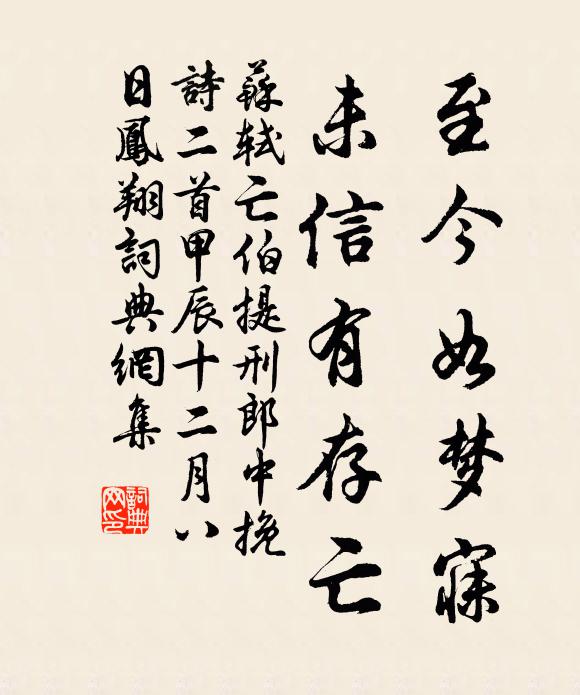 至今如梦寐
未信有存亡
蘇軾亡伯提刑郎中挽
詩二首甲辰十二月八
日鳳翔詞典網集
詞典
网印